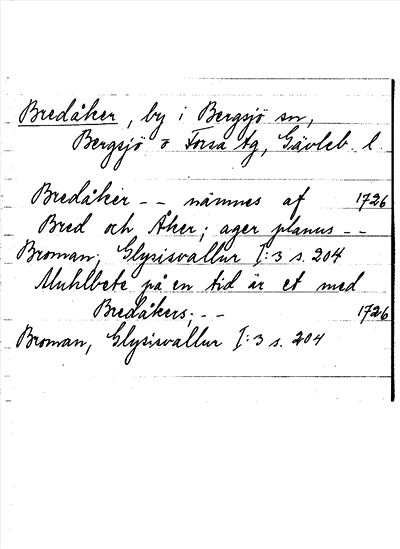 Bredåker, by i Bergsjö sn,
Bergsjö o Forsa tg, Gävleb. l.
Bredåker -- nämnes af 1726
Bred och Åker; ager planus --
Broman, Glysisvallur I:3 s. 204
Muhlbete på en tid är et med
Bredåkers; -- 1726
Broman, Glysisvallur I:3 s. 204